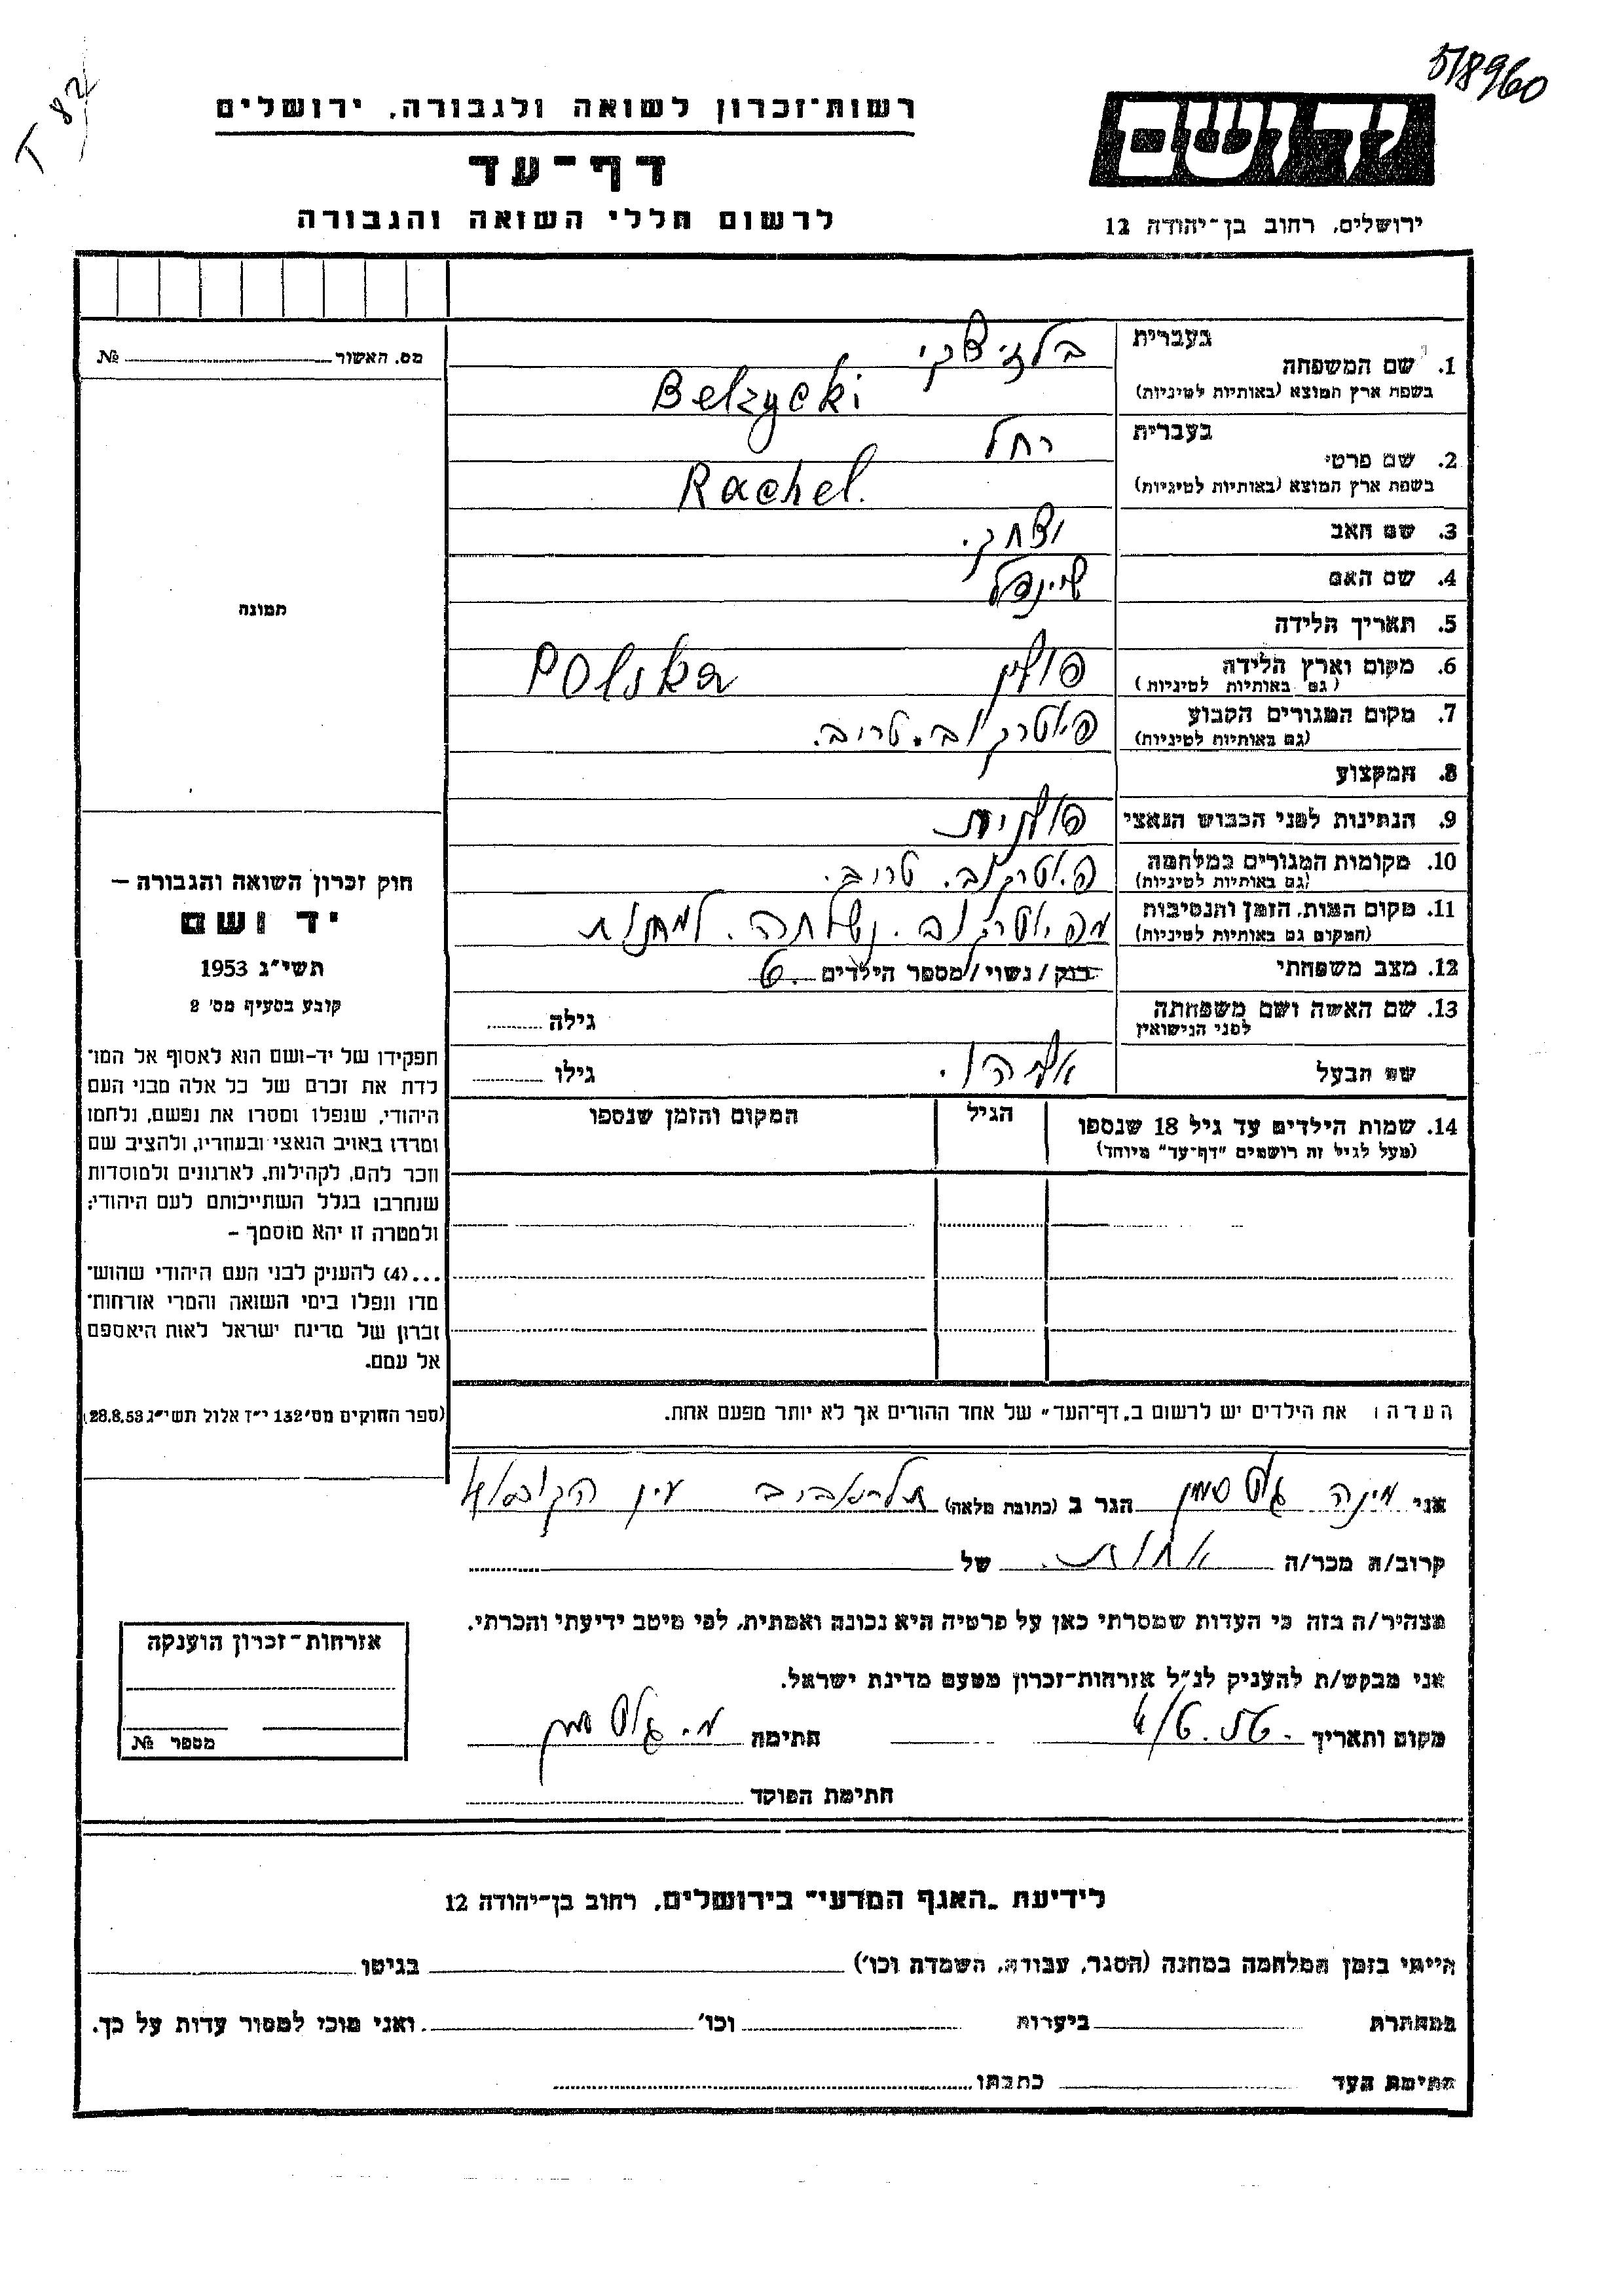 518960
T 82
רשות־זכרון לשואה ולגבורה, ירושלים
יד ושם
דף־עד
לרשום חללי השואה והגבורה
ירושלים, רחוב בן־יהודה 12
מס. האשור № 
1. שם המשפחה בעברית בלזיצקי
בשפת ארץ המוצא (באותיות לטיניות) Belzycki
2. שם פרטי בעברית רחל
בשפת ארץ המוצא (באותיות לטיניות) Rachel.
3. שם האב יצחק.
4. שם האם שיינדל
5. תאריך הלידה
6. מקום וארץ הלידה (גם באותיות לטיניות) פולין Polska
7. מקום המגורים הקבוע (גם באותיות לטיניות) פיוטרקוב. טריב.
8. המקצוע
9. הנתינות לפני הכבוש הנאצי פולנית
10. מקומות המגורים במלחמה (גם באותיות לטיניות) פיוטרקוב. טריב.
11. מקום המות, הזמן והנסיבות (המקום גם באותיות לטיניות) מפיוטרקוב. נשלחה. למחנות
12. מצב משפחתי רווק / נשוי / מספר הילדים 6.
13. שם האשה ושם משפחתה לפני הנישואין גילה
שם הבעל אליהו. גילו
14. שמות הילדים עד גיל 18 שנספו הגיל המקום והזמן שנספו
(מעל לגיל זה רושמים "דף־עד" מיוחד)
הערה: את הילדים יש לרשום ב"דף־העד" של אחד ההורים אך לא יותר מפעם אחת.
תמונה
חוק זכרון השואה והגבורה –
יד ושם
תשי"ג 1953
קובע בסעיף מס' 2
תפקידו של יד־ושם הוא לאסוף אל המו־
לדת את זכרם של כל אלה מבני העם
היהודי, שנפלו ומסרו את נפשם, נלחמו
ומרדו באויב הנאצי ובעוזריו, ולהציב שם
וזכר להם, לקהילות, לארגונים ולמוסדות
שנחרבו בגלל השתייכותם לעם היהודי;
ולמטרה זו יהא מוסמך –
...(4) להעניק לבני העם היהודי שהוש־
מדו ונפלו בימי השואה והמרי אזרחות־
זכרון של מדינת ישראל לאות היאספם
אל עמם.
(ספר החוקים מס' 132 י"ז אלול תשי"ג 28.8.53)
אני מינה הגר ב (כתובת מלאה) תל־אביב
קרוב/ה מכר/ה אחות של
מצהיר/ה בזה כי העדות שמסרתי כאן על פרטיה היא נכונה ואמתית, לפי מיטב ידיעתי והכרתי.
אני מבקש/ת להעניק לנ"ל אזרחות־זכרון מטעם מדינת ישראל.
מקום ותאריך 4/6.56. חתימה
חתימת הפוקד
אזרחות־זכרון הוענקה
מספר №
לידיעת „האגף המדעי" בירושלים, רחוב בן־יהודה 12
הייתי בזמן המלחמה במחנה (הסגר, עבודה, השמדה וכו') בגיטו
במחתרת ביערות וכו' ואני מוכן למסור עדות על כך.
חתימת העד כתבתו